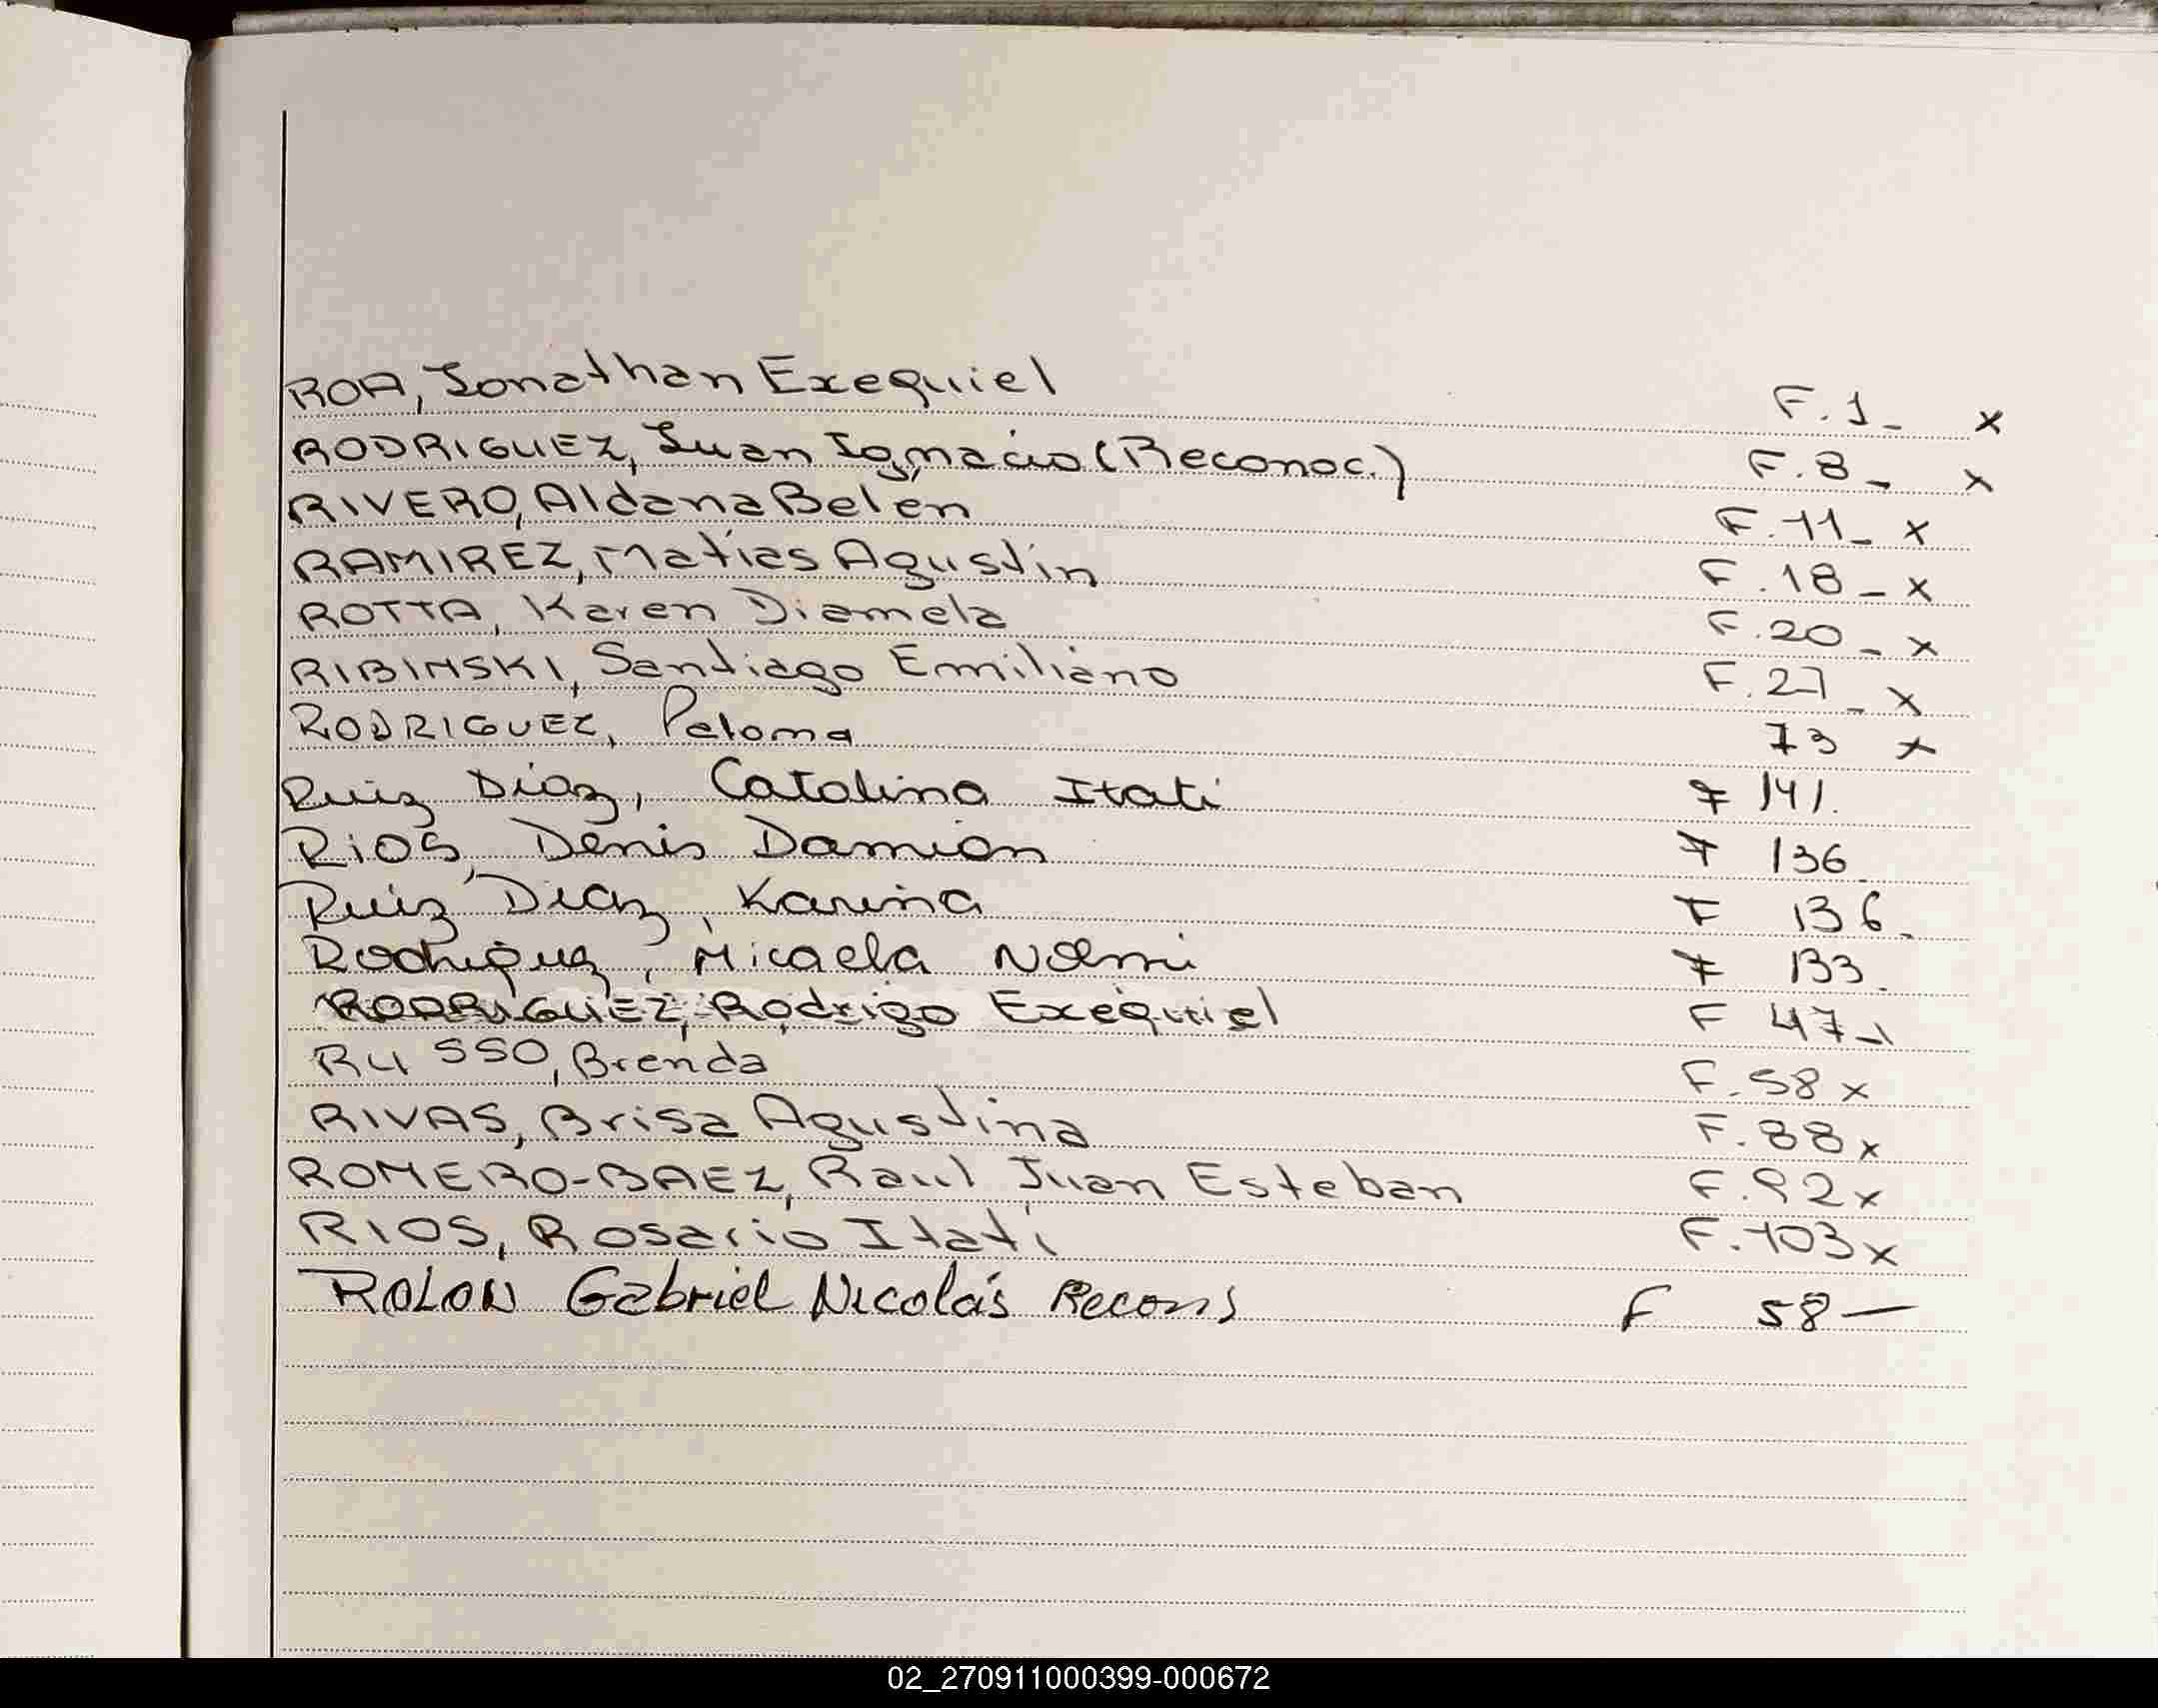 ROA, Jonathan Exequiel F. 1_ x
RODRIGUEZ, Juan Ignacio (Reconoc.) F. 8_ x
RIVERO, Aldana Belen F. 11_ x
RAMIREZ, Matias Agustin F. 18_ x
ROTTA, Karen Diamela F. 20_ x
RIBINSKI, Santiago Emiliano F. 27_ x
RODRIGUEZ, Paloma 73 x
Ruiz Diaz, Catalina Itati F 141.
RiOS, Denis Damian F 136
Ruiz Diaz, Karina F 136.
Rodriguez, Micaela Noemi F 133.
RODRIGUEZ, Rodrigo Exequiel F 47_
RUSSO, Brenda F. 58 x
RIVAS, Brisa Agustina F. 88 x
ROMERO-BAEZ, Raul Juan Esteban F. 92 x
RIOS, Rosario Itati F. 103 x
ROLON Gabriel Nicolás F 58 —
02_270911000399-000672